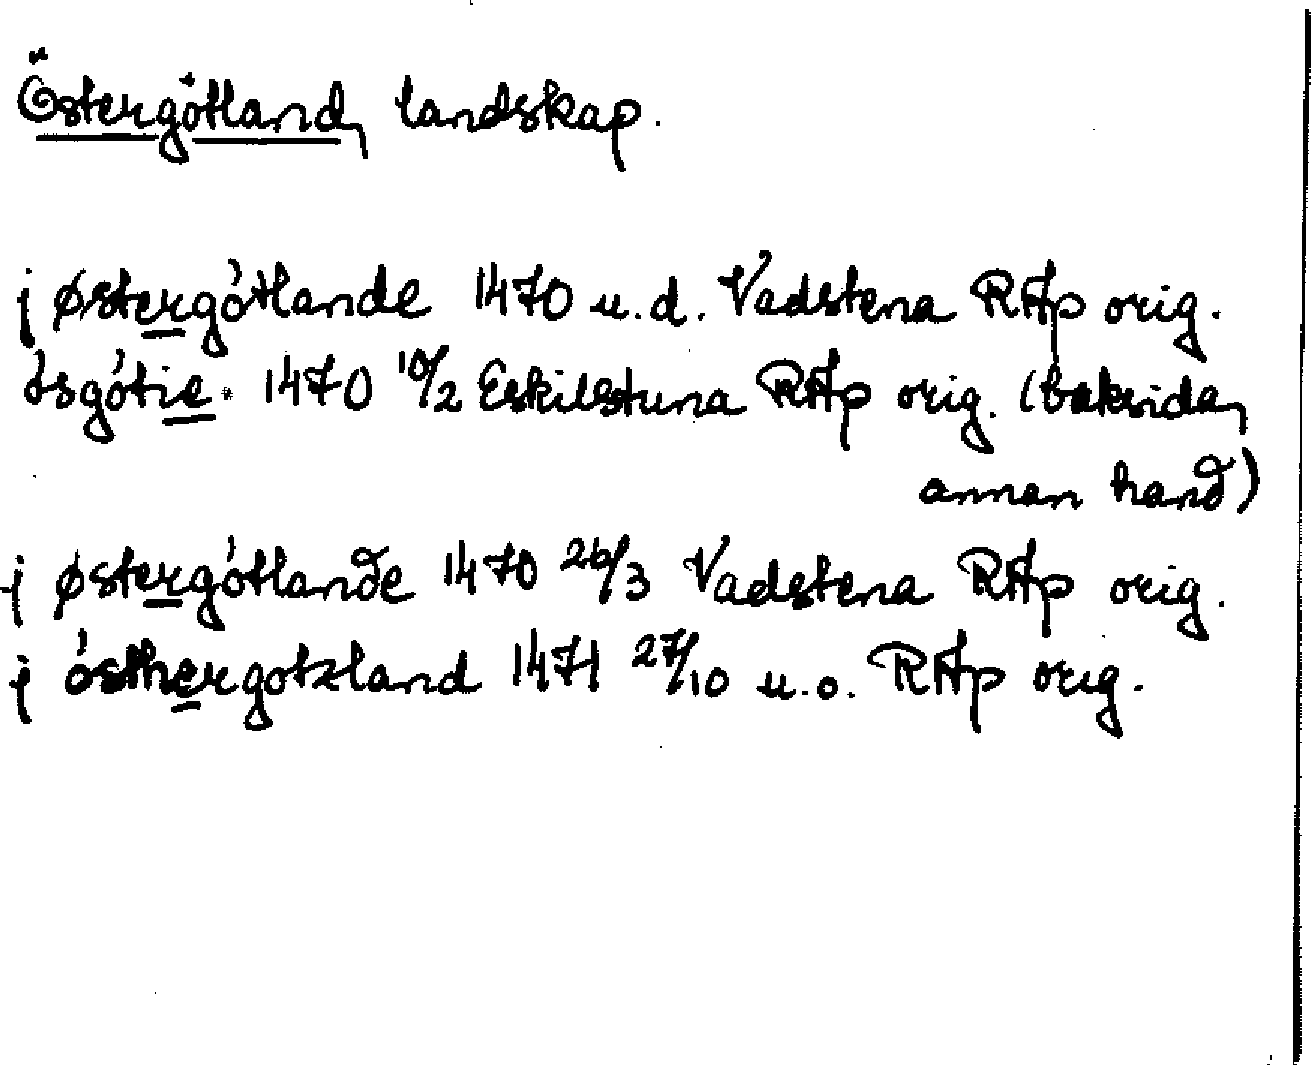 Östergötland, landskap.
j østergótlande 1470 u.d. Vadstena RAp orig.
ósgótie. 1470 10/2 Eskilstuna RAp orig. (baksida,
annan hand)
j østergótlande 1470 26/3 Vadstena RAp orig.
j ósthergotzland 1471 27/10 u.o. RAp orig.